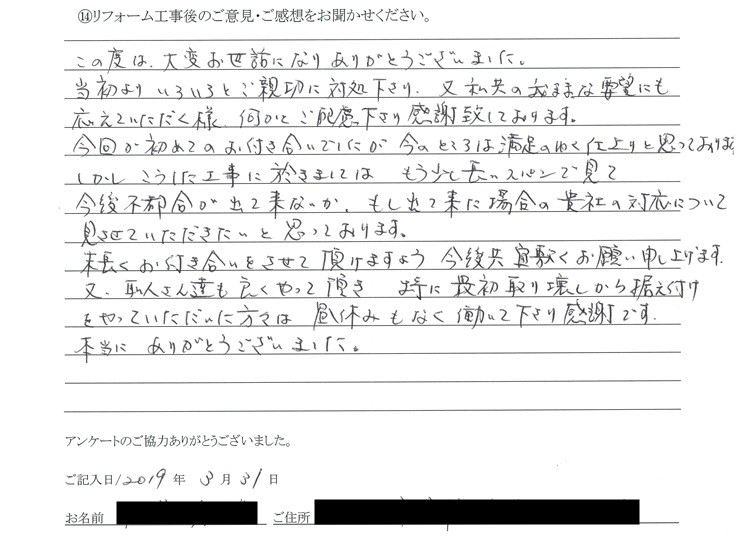 ⑭リフォーム工事後のご意見・ご感想をお聞かせください。
この度は、大変お世話になりありがとうございました。
当初よりいろいろとご親切に対処下さり、又私共の我ままな要望にも
応えていただく様、何かとご配慮下さり感謝致しております。
今回が初めてのお付き合いでしたが今のところは満足のゆく仕上りと思っております
しかしこうした工事に於きましてはもう少し長いスパンで見て
今後不都合が出て来ないか、もし出て来た場合の貴社の対応について
見させていただきたいと思っております。
末長くお付き合いをさせて頂けますよう今後共宜敷くお願い申し上げます。
又、職人さん達も良くやって頂き 特に最初取り壊しから据え付け
をやっていただいた方々は昼休みもなく働いて下さり感謝です。
本当にありがとうございました。
アンケートのご協力ありがとうございました。
ご記入日/2019年3月31日
お名前 ご住所